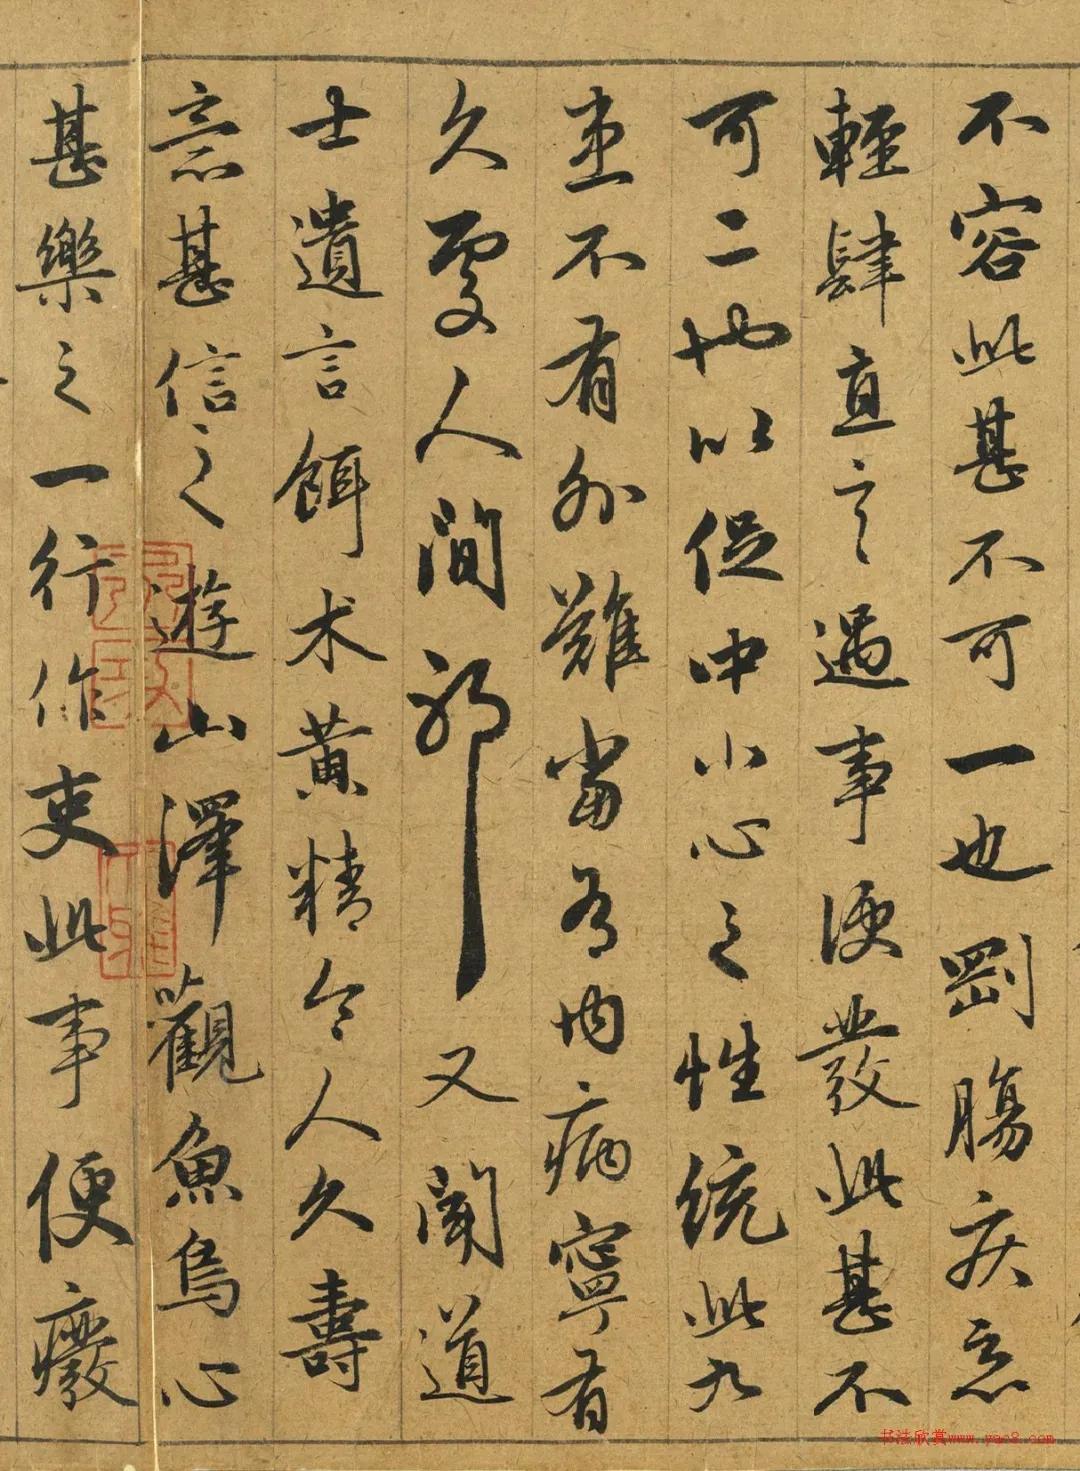 不容此甚不可一也剛腸疾惡
輕肆直言遇事便發此甚不
可二也以促中小心之性統此九
患不有外難當有内病寧有
久處人間邪又聞道
士遺言餌术黄精令人久壽
意甚信之遊山澤觀魚鳥心
甚樂之一行作吏此事便癈
书法欣赏www.yac8.com